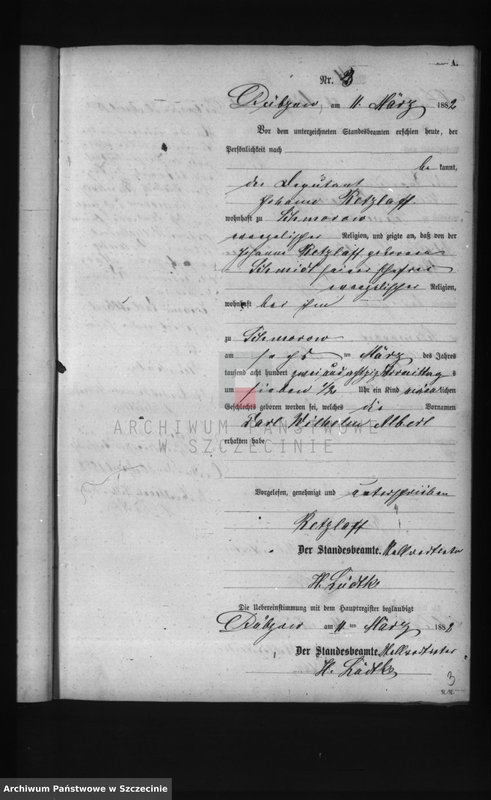 A.
Nr. 3
Dübzow, am 11. März 1882
Vor dem unterzeichneten Standesbeamten erschien heute, der
Persönlichkeit nach
be kannt,
der Deputant
Johann Retzlaff
wohnhaft zu Schmorow
evangelischer Religion, und zeigte an, daß von der
Retzlaff geborenen
Schmidt seiner Ehefrau
evangelischer Religion,
wohnhaft bei ihm
zu Schmorow
am sechs ten März des Jahres
tausend acht hundert zwei und achtzig Vormittag s
um sieben 1/2 Uhr ein Kind männlichen
Geschlechts geboren worden sei, welches die Vornamen
Karl Wilhelm Albert
erhalten habe
ARCHIWUM PAŃSTWOWE
W SZCZECINIE
Vorgelesen, genehmigt und unterschrieben
Retzlaff
Der Standesbeamte. Stellvertreter
H. Lüdtke
Die Uebereinstimmung mit dem Hauptregister beglaubigt
Dübzow am 11 ten März 1882
Der Standesbeamte. Stellvertreter
H. Lüdtke
3
Archiwum Państwowe w Szczecinie